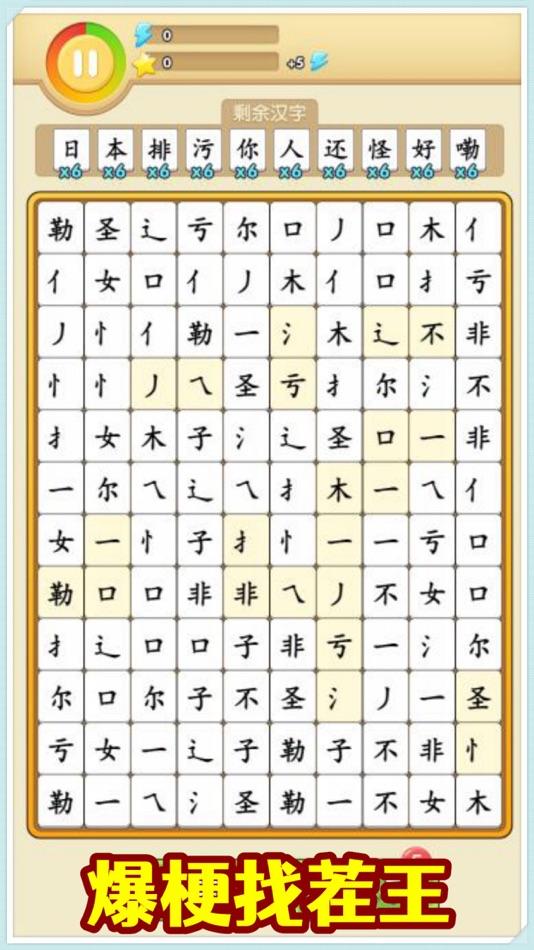 0
0 +5
剩余汉字
日 本 排 污 你 人 还 怪 好 嘞
x6 x6 x6 x6 x6 x6 x6 x6 x6 x6
勒 圣 辶 亏 尔 口 丿 口 木 亻
亻 女 口 亻 丿 木 亻 口 扌 亏
丿 忄 亻 勒 一 氵 木 辶 不 非
忄 忄 丿 乀 圣 亏 扌 尔 氵 不
扌 女 木 子 氵 辶 圣 口 一 非
一 尔 乀 辶 乀 扌 木 一 乀 亻
女 一 忄 子 扌 忄 一 一 亏 口
勒 口 口 非 非 乀 丿 不 女 口
扌 辶 口 口 子 非 亏 一 氵 尔
尔 口 尔 子 不 圣 氵 丿 一 圣
亏 女 一 辶 子 勒 子 不 非 忄
勒 一 乀 氵 圣 勒 一 不 女 木
爆梗找茬王